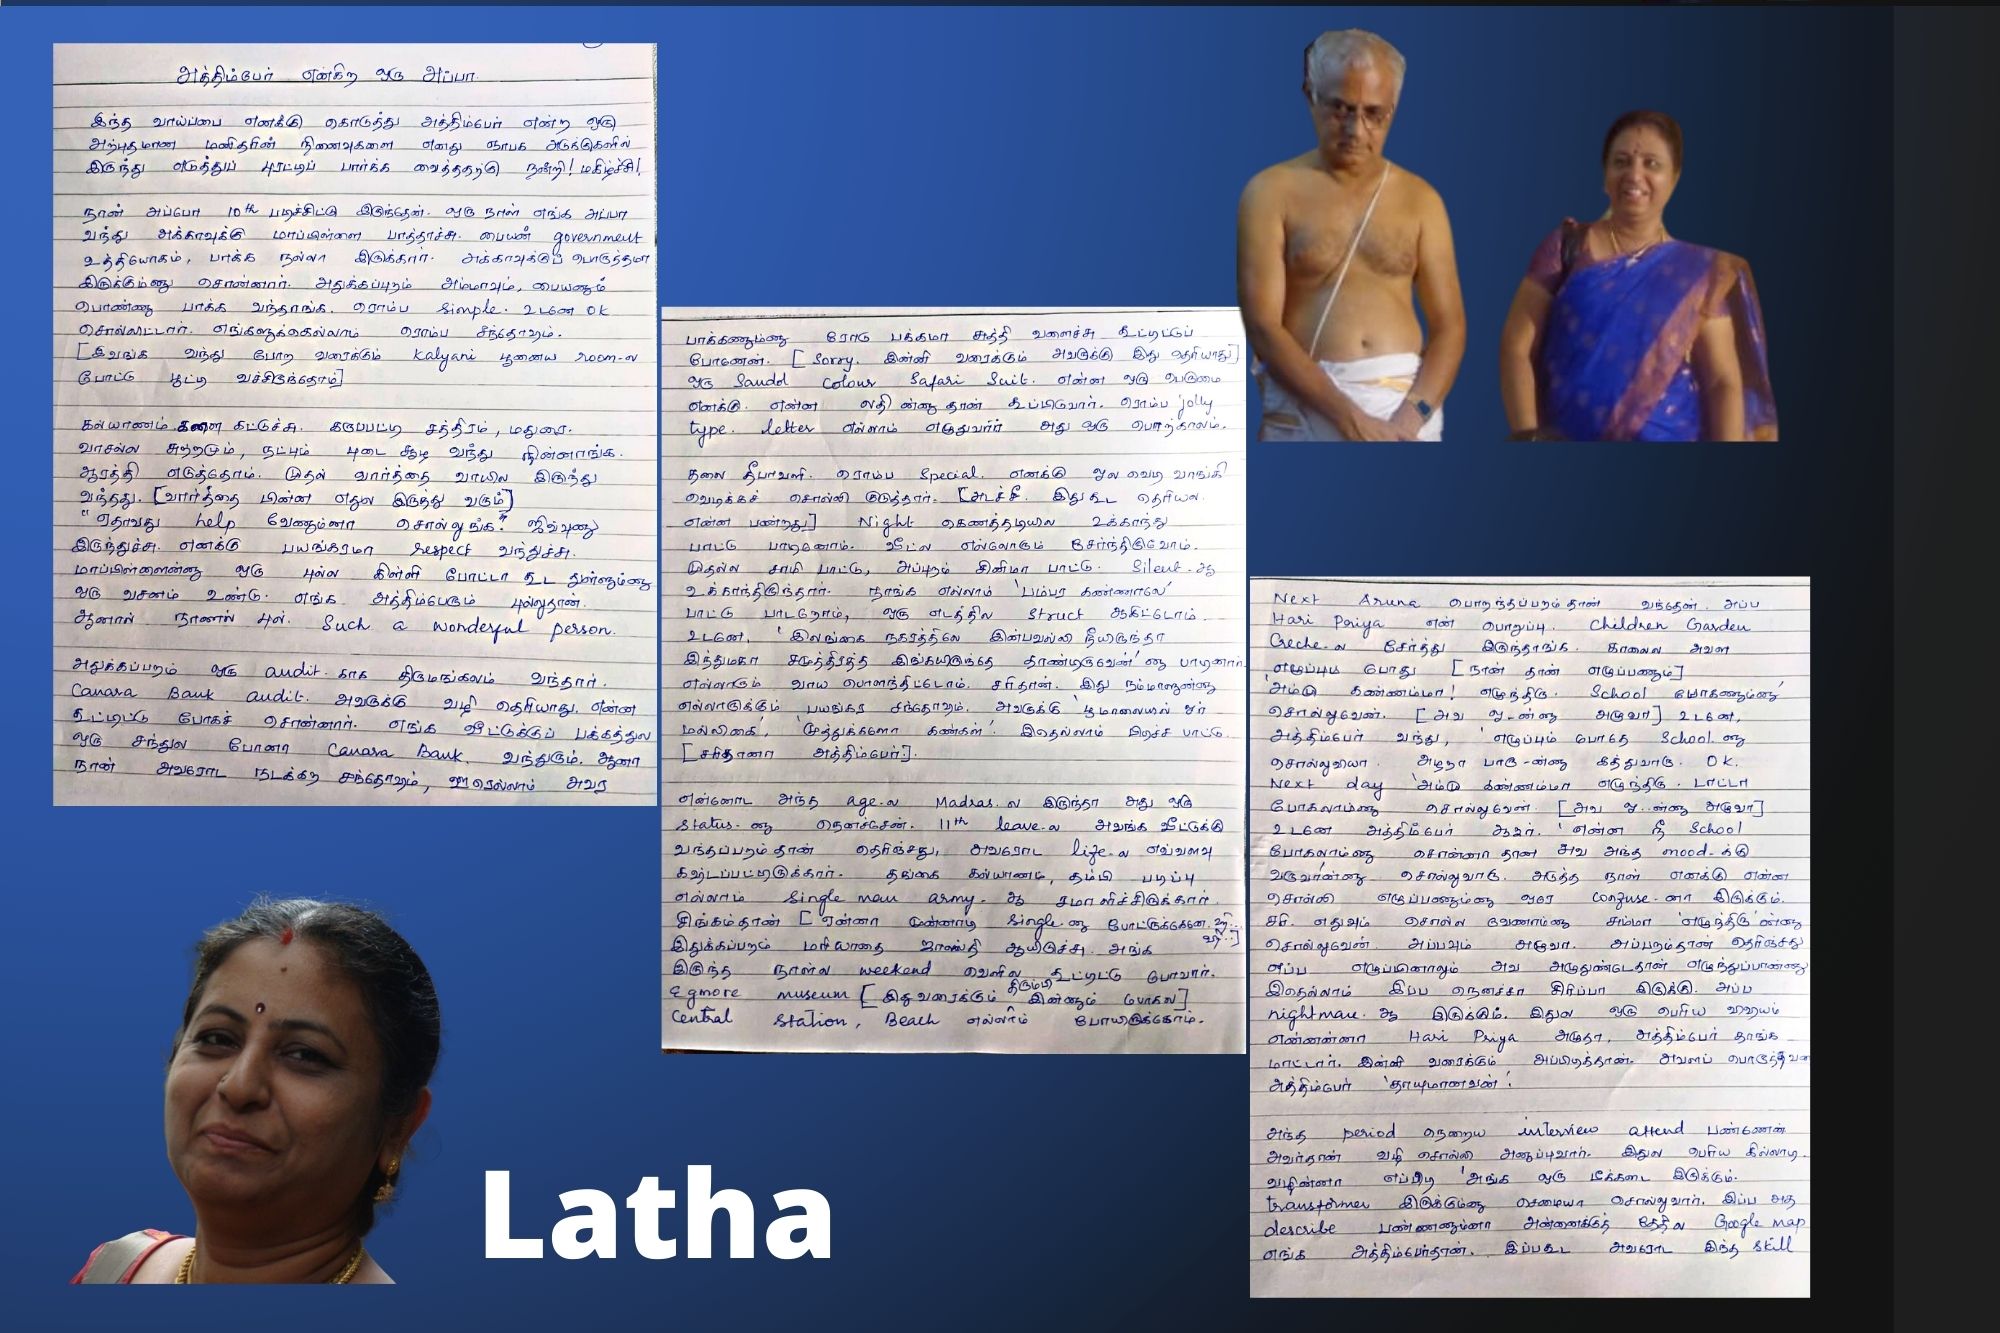 அத்திம்பேர் என்கிற ஒரு அப்பா.
இந்த வாய்ப்பை எனக்கு கொடுத்து அத்திம்பேர் என்ற ஒரு
அற்புதமான மனிதரின் நினைவுகளை எனது ஞாபக அடுக்குகளில்
இருந்து எடுத்துப் புரட்டிப் பார்க்க வைத்ததற்கு நன்றி! மகிழ்ச்சி!
நான் அப்போ 10th படிச்சிட்டு இருந்தேன். ஒரு நாள் எங்க அப்பா
வந்து அக்காவுக்கு மாப்பிள்ளை பாத்தாச்சு. பையன் government
உத்தியோகம், பாக்க நல்லா இருக்கார். அக்காவுக்குப் பொருத்தமா
இருக்கும்னு சொன்னார். அதுக்கப்புறம் அம்மாவும், பையனும்
பொண்ணு பாக்க வந்தாங்க. ரொம்ப simple. உடனே OK
சொல்லிட்டார். எங்களுக்கெல்லாம் ரொம்ப சந்தோஷம்.
[இவங்க வந்து போற வரைக்கும் Kalyani பூனைய room-ல
போட்டு பூட்டி வச்சிருந்தோம்]
கல்யாணம் களை கட்டுச்சு. கருப்பட்டி சத்திரம், மதுரை.
வாசல்ல சுற்றமும், நட்பும் புடை சூழ வந்து நின்னாங்க.
ஆரத்தி எடுத்தோம். முதல் வார்த்தை வாயில இருந்து
வந்தது. [வார்த்தை பின்ன எதுல இருந்து வரும்]
"ஏதாவது help வேணும்னா சொல்லுங்க." ஜிவ்வுனு
இருந்துச்சு. எனக்கு பயங்கரமா respect வந்துச்சு.
மாப்பிள்ளைன்னு ஒரு புல்ல கிள்ளி போட்டா கூட துள்ளும்னு
ஒரு வசனம் உண்டு. எங்க அத்திம்பேரும் புல்லுதான்.
ஆனால் நாணல் புல். Such a wonderful person.
அதுக்கப்பறம் ஒரு audit. காக திருமங்கலம் வந்தார்.
Canara Bank audit. அவருக்கு வழி தெரியாது. என்ன
கூட்டிட்டு போகச் சொன்னார். எங்க வீட்டுக்குப் பக்கத்துல
ஒரு சந்துல போனா Canara Bank. வந்துரும். ஆனா
நான் அவரோட நடக்கற சந்தோஷம், ஊரெல்லாம் அவர
பாக்கணும்னு ரோடு பக்கமா சுத்தி வளைச்சு கூட்டிட்டுப்
போனேன். [Sorry. இன்னி வரைக்கும் அவருக்கு இது தெரியாது]
ஒரு Sandal colour Safari Suit. என்ன ஒரு பெருமை
எனக்கு. என்ன லதி ன்னு தான் கூப்பிடுவார். ரொம்ப jolly
type. letter எல்லாம் எழுதுவார் அது ஒரு பொற்காலம்.
தலை தீபாவளி. ரொம்ப Special. எனக்கு ஓல வெடி வாங்கி
வெடிக்கச் சொல்லி குடுத்தார். [அடச்சீ. இதுகூட தெரியல.
என்ன பண்றது] Night கெணத்தடியில உக்காந்து
பாட்டு பாடினோம். வீட்ல எல்லோரும் சேர்ந்திடுவோம்.
முதல்ல சாமி பாட்டு, அப்புறம் சினிமா பாட்டு. Silent-ஆ
உக்காந்திருந்தார். நாங்க எல்லாம் 'பம்பர கண்ணாலே'
பாட்டு பாடறோம், ஒரு எடத்தில struct ஆகிட்டோம்.
உடனே, 'இலங்கை நகரத்திலே இன்பவல்லி நீயிருந்தா
இந்துமகா சமுத்திரத்த இங்கயிருந்தே தாண்டிருவேன்' னு பாடினார்.
எல்லாரும் வாய பொளந்திட்டோம். சரிதான். இது நம்மாளுன்னு
எல்லாருக்கும் பயங்கர சந்தோஷம். அவருக்கு 'பூமாலையில் ஓர்
மல்லிகை', 'முத்துக்களோ கண்கள்'. இதெல்லாம் பிடிச்ச பாட்டு.
[சரிதானா அத்திம்பேர்?].
என்னோட அந்த age-ல Madras-ல இருந்தா அது ஒரு
status-னு நெனச்சேன். 11th leave-ல அவங்க வீட்டுக்கு
வந்தப்பறம் தான் தெரிஞ்சது, அவரோட life-ல எவ்வளவு
கஷ்டப்பட்டிருக்கார். தங்கை கல்யாணம், தம்பி படிப்பு
எல்லாம் single man army-ஆ சமாளிச்சிருக்கார்.
சிங்கம்தான் [ஏன்னா முன்னாடி single-னு போட்ருக்கேன
இதுக்கப்பறம் மரியாதை ஜாஸ்தி ஆயிடுச்சு. அங்க
இருந்த நாள்ல weekend வெளில கூட்டிட்டு போவார்.
Egmore museum [இதுவரைக்கும் திரும்பி இன்னும் போகல]
Central station, Beach எல்லாம் போயிருக்கோம்.
Next Aruna பொறந்தப்பறம் தான் வந்தேன். அப்ப
Hari Priya என் பொறுப்பு. Children Garden
Creche-ல சேர்த்து இருந்தாங்க. காலைல அவள
எழுப்பும் போது [நான் தான் எழுப்பணும்]
'அம்மு கண்ணம்மா! எழுந்திரு. School போகணும்னு'
சொல்லுவேன். [அவ ஓ-ன்னு அழுவா] உடனே,
அத்திம்பேர் வந்து, 'எழுப்பும் போதே School னு
சொல்லுவியா. அழறா பாரு-ன்னு கத்துவாரு. OK.
Next day 'அம்மு கண்ணம்மா எழுந்திரு. டாட்டா
போகலாம்னு சொல்லுவேன். [அவ ஓ..ன்னு அழுவா]
உடனே அத்திம்பேர் ஆஜர். 'என்ன நீ School
போகலாம்னு சொன்னா தான அவ அந்த mood-க்கு
வருவான்னு சொல்லுவாரு. அடுத்த நாள் எனக்கு என்ன
சொல்லி எழுப்பணும்னு ஒரே confuse-னா இருக்கும்.
சரி. எதுவும் சொல்ல வேணாம்னு சும்மா 'எழுந்திரு'ன்னு
சொல்லுவேன். அப்பவும் அழுவா. அப்பறம்தான் தெரிஞ்சது
எப்ப எழுப்பினாலும் அவ அழுதுண்டேதான் எழுந்துப்பான்னு
இதெல்லாம் இப்ப நெனச்சா சிரிப்பா இருக்கு. அப்ப
nightmare-ஆ இருக்கும். இதுல ஒரு பெரிய விஷயம்
என்னன்னா Hari Priya அழுதா, அத்திம்பேர் தாங்க
மாட்டார். இன்னி வரைக்கும் அப்பிடித்தான். அவளப் பொருத்தவரை
அத்திம்பேர் 'தாயுமானவன்'.
அந்த period நெறைய interview attend பண்ணேன்
அவர்தான் வழி சொல்லி அனுப்புவார். இதுல பெரிய கில்லாடி.
வழின்னா எப்பிடி 'அங்க ஒரு டீக்கடை இருக்கும்.
transformer இருக்கும்னு செமையா சொல்லுவார். இப்ப அத
describe பண்ணணும்னா அன்னைக்குத் தேதில Google map
எங்க அத்திம்பேர்தான். இப்பகூட அவரோட இந்த skill
Latha